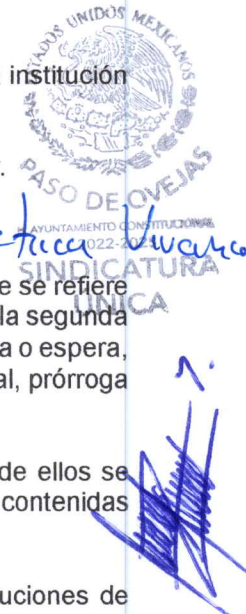 ESTADOS UNIDOS MEXICANOS
institución
PASO DE OVEJAS
H. AYUNTAMIENTO CONSTITUCIONAL
2022-2025
SINDICATURA
ÚNICA
e se refiere
la segunda
a o espera,
al, prórroga
de ellos se
contenidas
uciones de